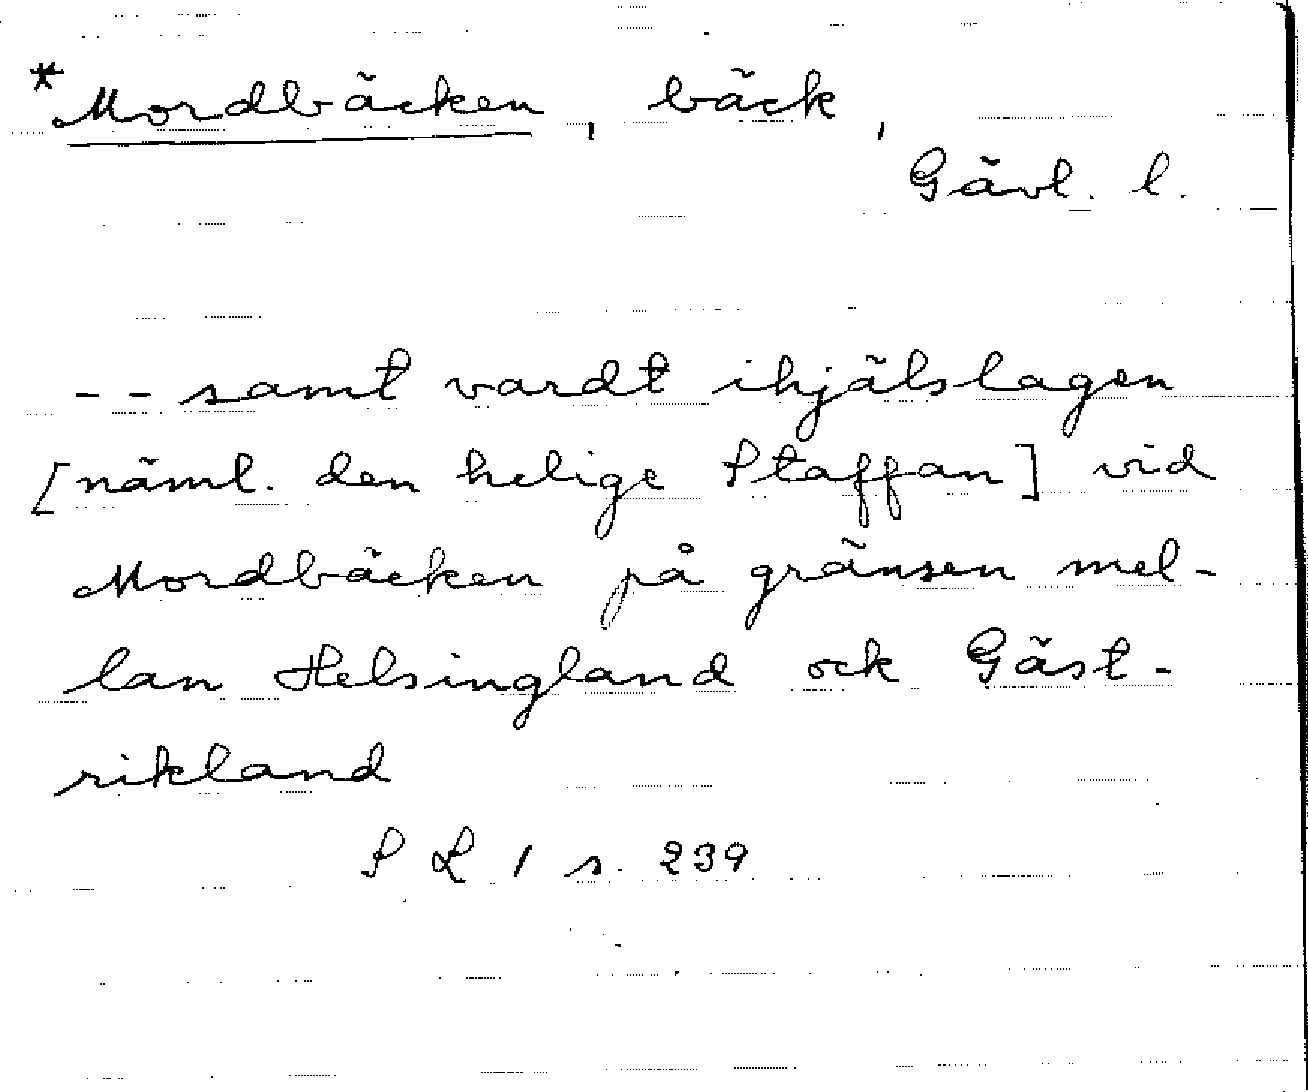 *Mordbäcken, bäck,
Gävl. l.
-- samt vardt ihjälslagen
[näml. den helige Staffan] vid
Mordbäcken på gränsen mel-
lan Helsingland ock Gäst-
rikland
S L 1 s. 239